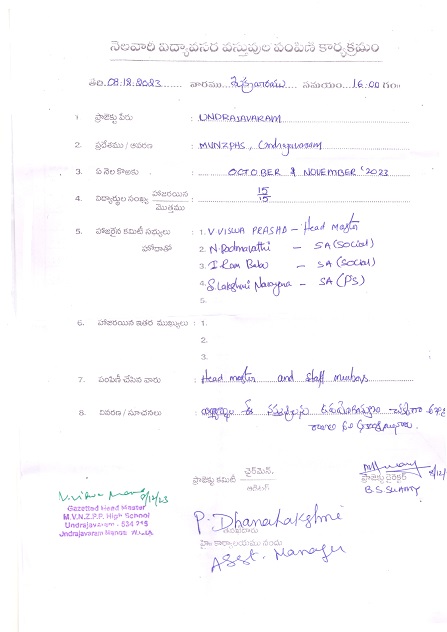 నెలవారి విద్యావసర వస్తువుల పంపిణీ కార్యక్రమం
తేది. 08.12.2023 వారము.. శుక్రవారము సమయం.. 16:00 గం॥
1. ప్రాజెక్టు పేరు : UNDRAJAVARAM
2. ప్రదేశము / ఆవరణ : MVNZPHS, Undrajavaram
3. ఏ నెల కొఱకు : OCTOBER & NOVEMBER '2023
4. విద్యార్థుల సంఖ్య హాజరయిన / మొత్తము : 15/15
5. హాజరైన కమిటీ సభ్యులు : 1. V VISWA PRASAD - Head Master
హోదాతో 2. N. Padmavathi - SA (Social)
3. I. Ram Babu - SA (Social)
4. S. Lakshmi Narayana - SA (PS)
5.
6. హాజరయిన ఇతర ముఖ్యులు : 1.
2.
3.
7. పంపిణీ చేసిన వారు : Head master and staff members
8. వివరణ / సూచనలు : ఈ
ప్రాజెక్టు కమిటీ ఛైర్మెన్.
ప్రాజెక్టు డైరెక్టర్
B.S.SWAMY
8/12/23
Gazetted Head Master
M.V.N.Z.P.P. High School
Undrajavaram - 534 215
Undrajavaram Mandal W.G.Dt.
P. Dhanalakshmi
హై కార్యాలయము నందు
Asst. Manager